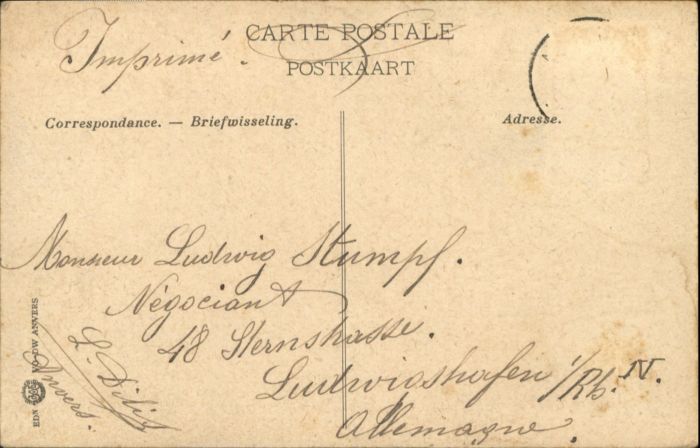 CARTE POSTALE
Imprimé.
POSTKAART
Correspondance. — Briefwisseling.
Adresse.
Monsieur Ludwig Stumpf.
Négociant
48 Sternstrasse.
Ludwigshafen ᵃ/Rh. IV.
Allemagne.
L.
Anvers.
EDN ANVERS